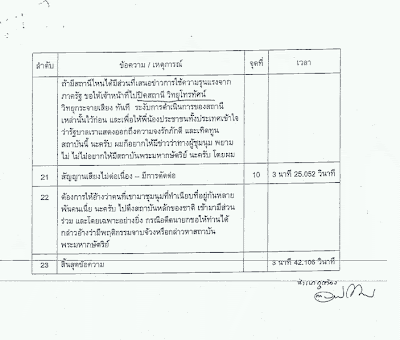 ลำดับ ข้อความ / เหตุการณ์ จุดที่ เวลา
ถ้ามีสถานีไหนได้มีส่วนที่เสนอข่าวการใช้ความรุนแรงจาก
ภาครัฐ ขอให้เจ้าหน้าที่ไปปิดสถานี วิทยุโทรทัศน์
วิทยุกระจายเสียง ทันที ระงับการดำเนินการของสถานี
เหล่านั้นไว้ก่อน และเพื่อให้พี่น้องประชาชนทั้งประเทศเข้าใจ
ว่ารัฐบาลเราแสดงออกถึงความจงรักภักดี และเทิดทูน
สถาบันนี้ นะครับ ผมก็อยากให้มีข่าวว่าทางผู้ชุมนุม พยาม
ไม่ ไม่ไม่อยากให้มีสถาบันพระมหากษัตริย์ นะครับ โดยผม
21 สัญญาณเสียงไม่ต่อเนื่อง – มีการตัดต่อ 10 3 นาที 25.052 วินาที
22 ต้องการให้อ้างว่าคนที่เขามาชุมนุมที่ทำเนียบที่อยู่กันหลาย
พันคนเนี่ย นะครับ ไปดึงสถาบันหลักของชาติ เข้ามามีส่วน
ร่วม และโดยเฉพาะอย่างยิ่ง กรณีอดีตนายกขอให้ท่านได้
กล่าวอ้างว่ามีพฤติกรรมจาบจ้วงหรือกล่าวหาสถาบัน
พระมหากษัตริย์
23 สิ้นสุดข้อความ 3 นาที 42.106 วินาที
สำเนาถูกต้อง